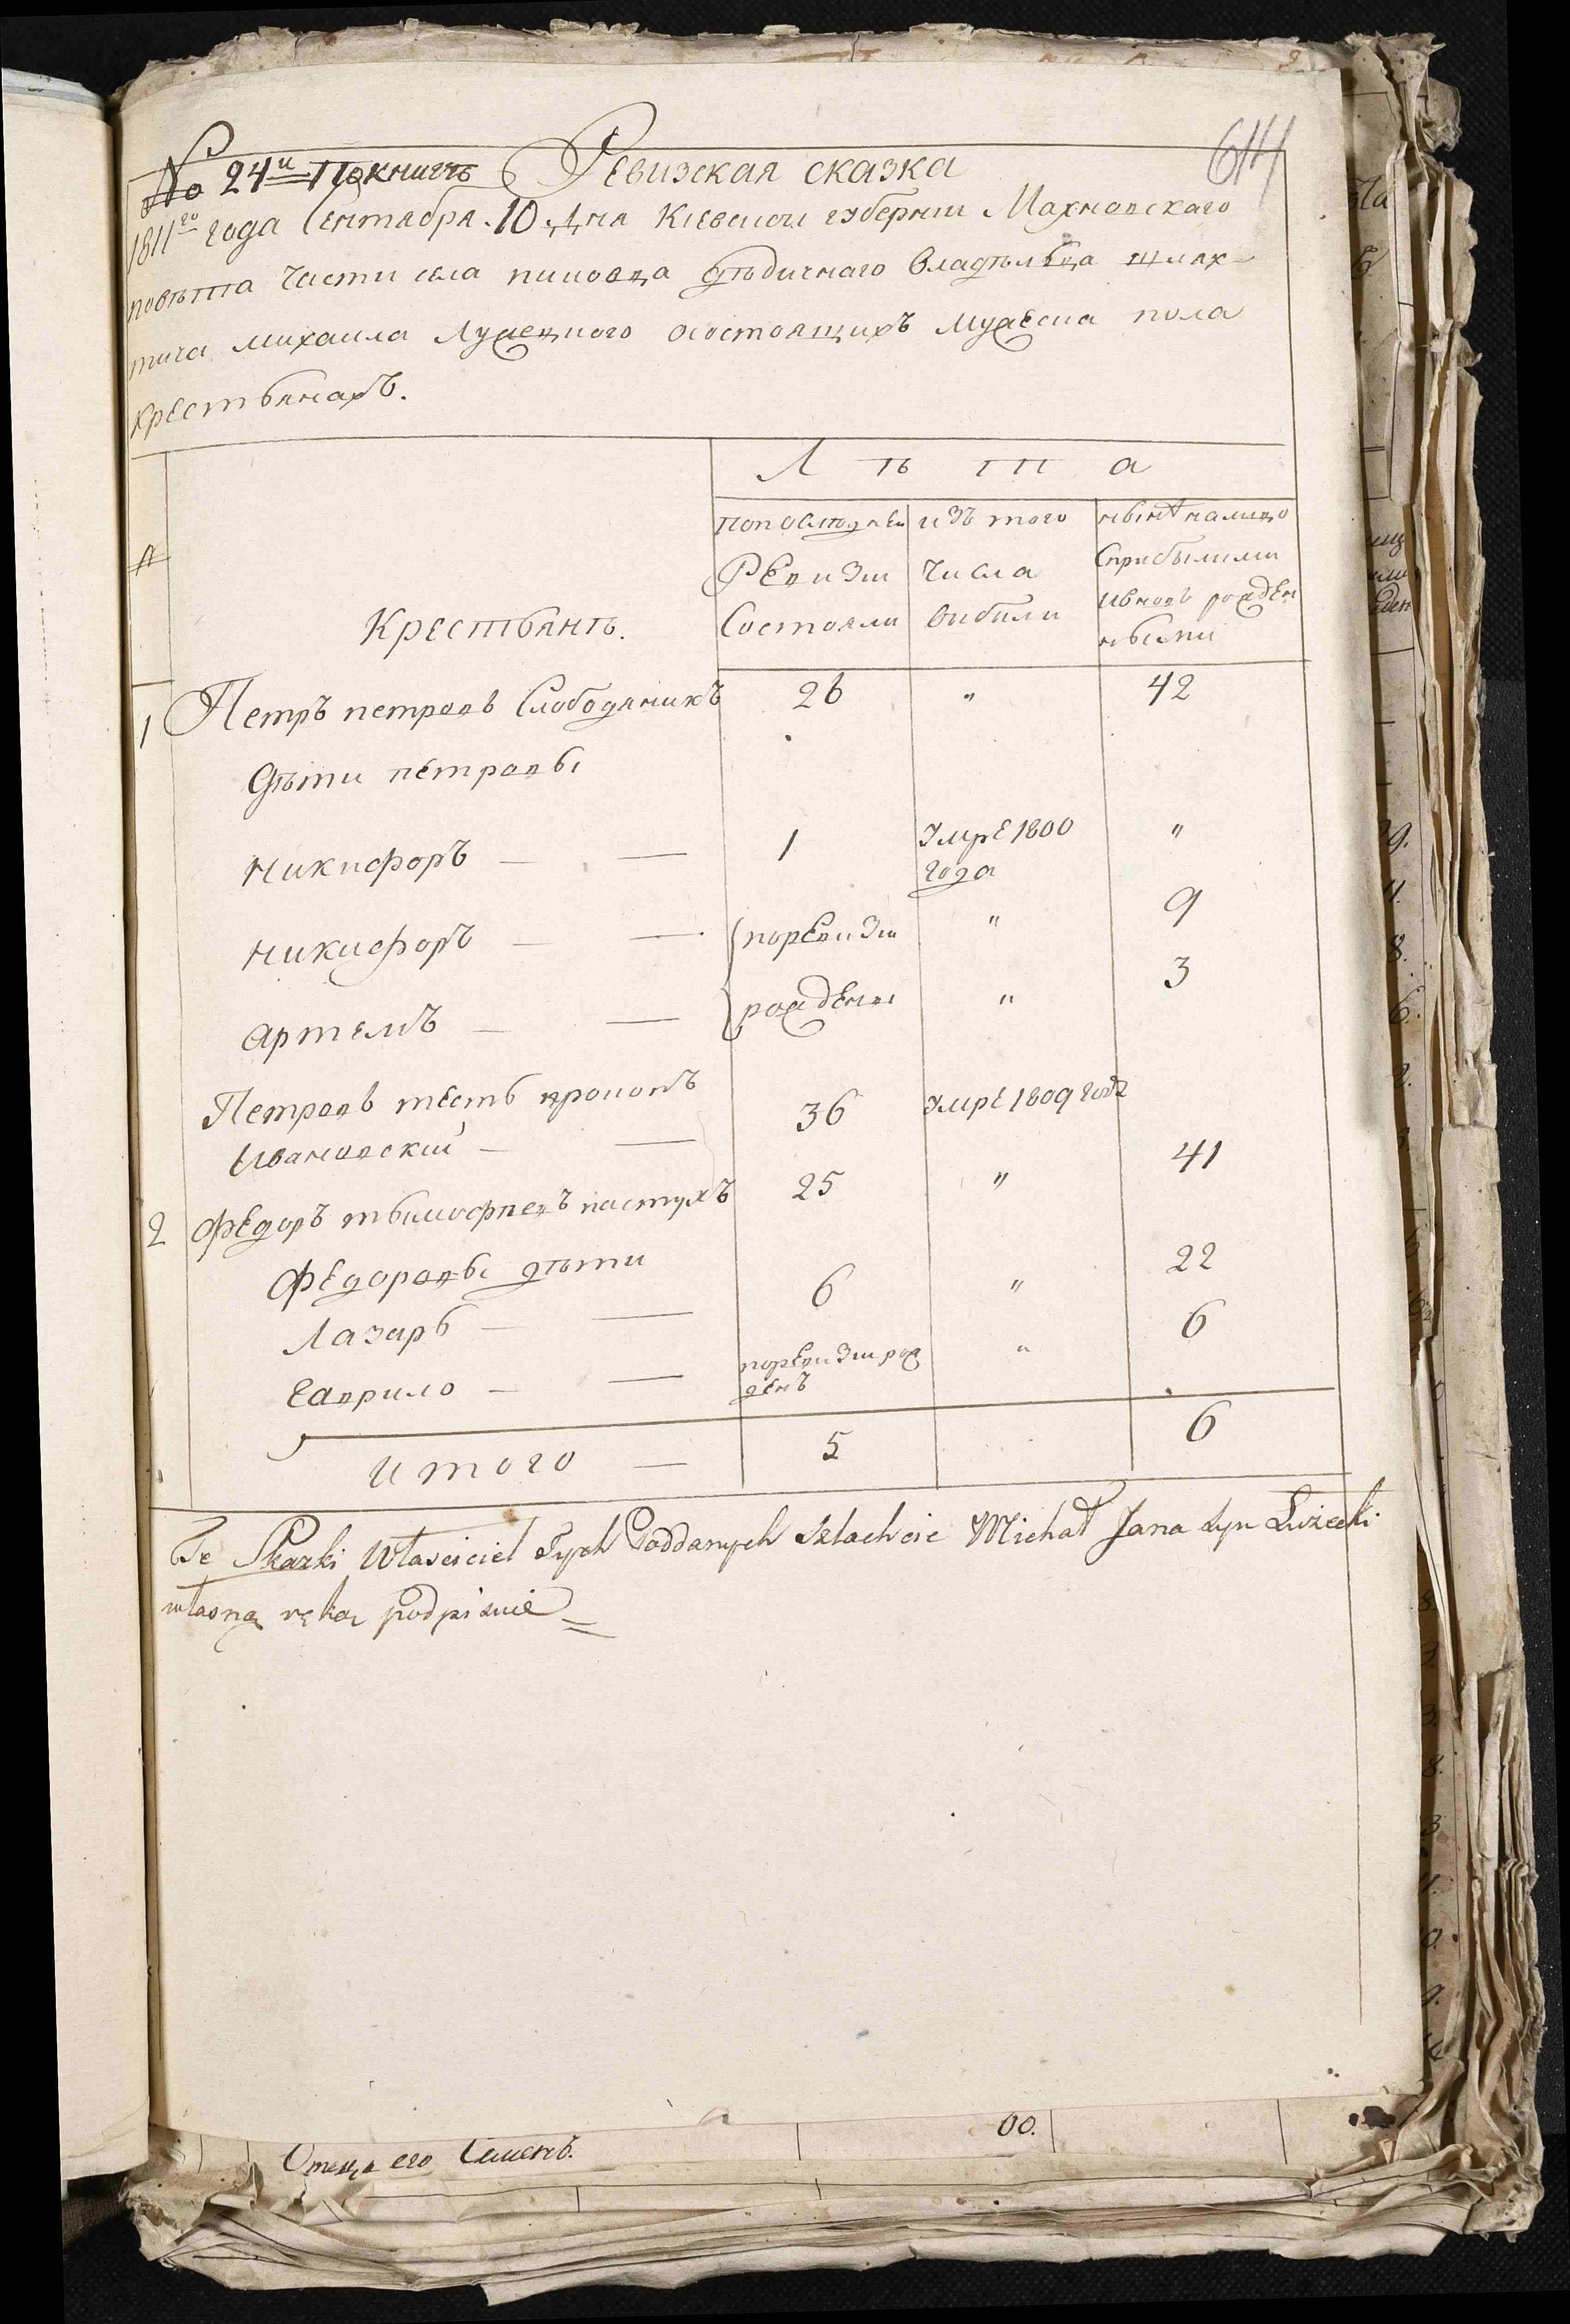 № 24й По книгѣ Ревизская сказка
614
1811го года Сентября 10 Дня Киевской губернии Махновского
повѣта части села пиковца дѣдичнаго владѣльца шлях-
тича михаила Лужецкого осостоящихъ мужеска пола
крестьянахъ.
Л ѣ т а
№
Крестьянѣ.
попослѣдней Ревизии Состояли
изъ того числа вибили
нынѣ налицо Сприбылими ивновь рожденными
1 Петръ петровъ Слободяникъ 26 " 42
Дѣти петровы
никифоръ — — 1 умре 1800 года "
никифоръ — — поревизии " 9
артемъ — — рождены " 3
Петровъ тесть прокопъ
Ивановский — — 36 умре 1809 года
2 Федоръ тымофѣевъ пастухъ 25 " 41
Федоровы дѣти
Лазарь — — 6 " 22
Гаврило — — поревизии рожденъ " 6
итого — 5 6
Te Skazki Własciciel Tych Poddanych Szlachcic Michał Jana syn Łużecki
własną ręką podpisuię
Отецъ его Семенъ.
00.